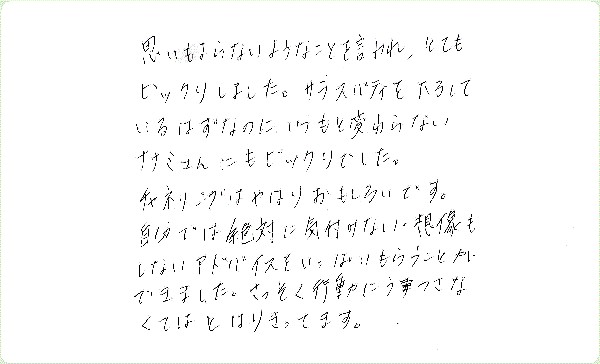 思いもよらないようなことを言われ、とても
ビックリしました。サラスバティを下ろして
いるはずなのに、いつもと変わらない
ナナミさんにもビックリでした。
チャネリングはやはりおもしろいです。
自分では絶対に気付けない、想像も
しないアドバイスをいっぱいもらうことが
できました。さっそく行動にうつさな
くてはとはりきってます。